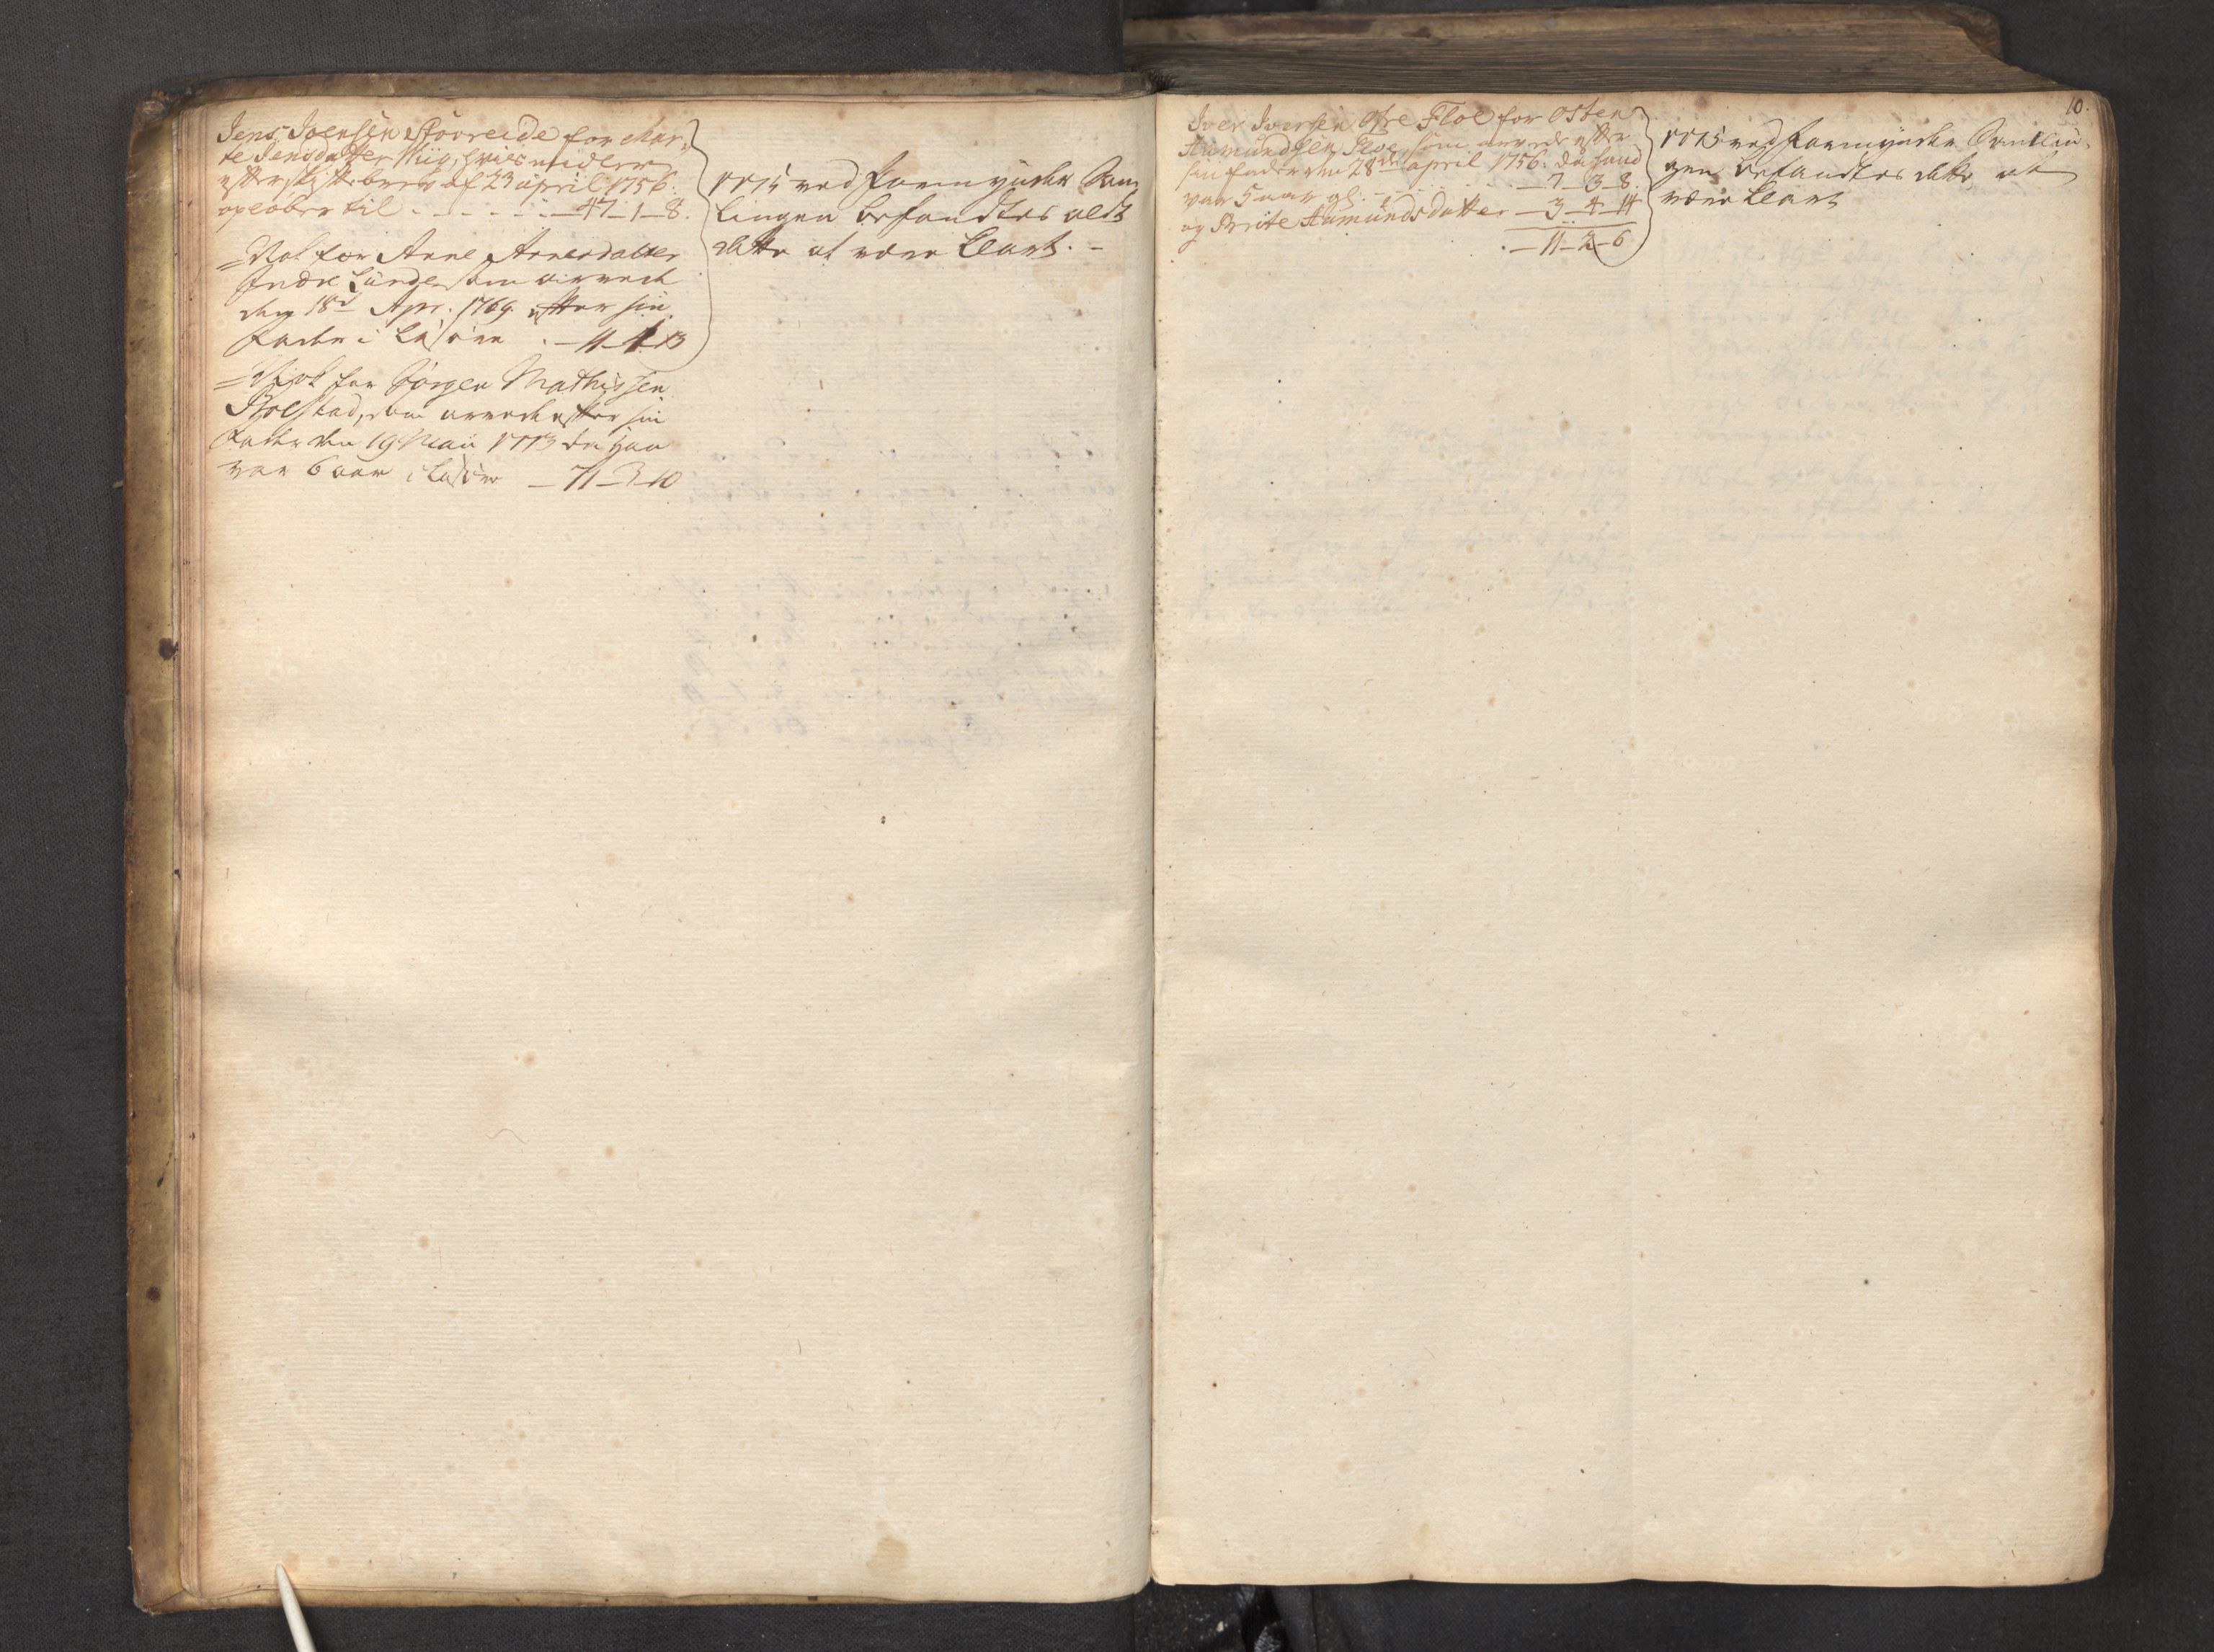 Jens Joensen Støvreide for Mar,,
te Jensdatter Wiig, hvis midler
efter skiftebrev af 23 april 1756.
opløber til . . . . . . 47-1-8.
= Nok for Anne Arnesdatter
Indre Lunde som arvede
den 18d Apr. 1769. efter sin
Fader i Løsøre . - 11-1-13
= Nok for Jørgen Mathissen
Bolstad, som arvede efter sin
Fader den 19 Maii 1773 da han
var 6 aar i Løsøre - 71-3-10
1775 ved Formynder Sam,
lingen befandtes alt
dette at være klart. -
10.
Iver Iversen Øfre Floe for Osten
Aamundsen Floe, som arvede efter
sin fader den 28de april 1756. da hand
var 5 aar gl. - . . . . - 7-3-8.
og Brite Aamundsdatter - 3-4-14
. - 11-2-6
1775 ved Formynder Samlin,
gen befandtes dette at
være klart